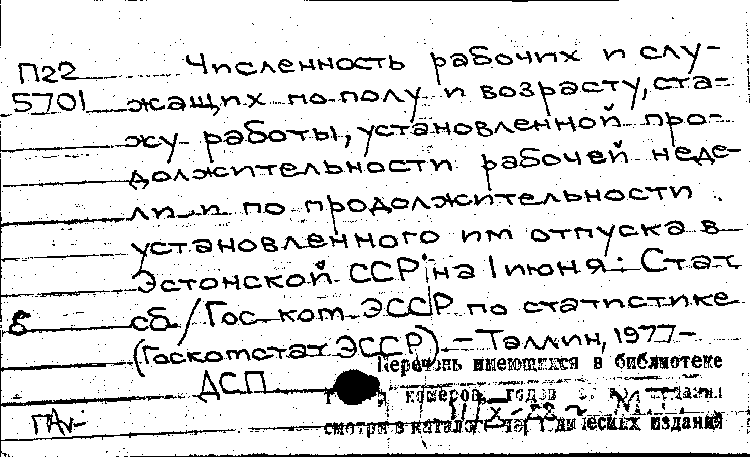 П22 Численность рабочих и слу-
5701 жащих по полу и возрасту, ста-
жу работы, установленной про-
должительности рабочей неде-
ли и по продолжительности
установленного им отпуска в
Эстонской ССР на 1 июня: Стат
б сб / Гос. ком. ЭССР по статистике
(Госкомстат ЭССР). – Таллин, 1977–
Перечень имеющихся в библиотеке
ДСП
номеров, годов
смотри в катал изданий